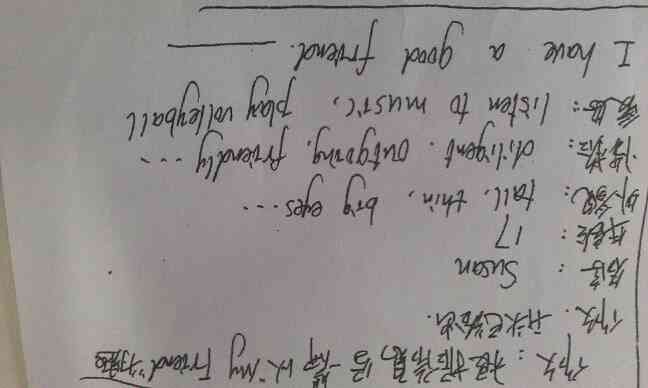 作文:根据信息,写一篇以"My Friend"为题
作文. 开头已给出.
名字: Susan
年龄: 17
外貌: tall. thin. big eyes....
性格: diligent. outgoing. friendly .....
爱好: listen to music. play volleyball
I have a good friend.